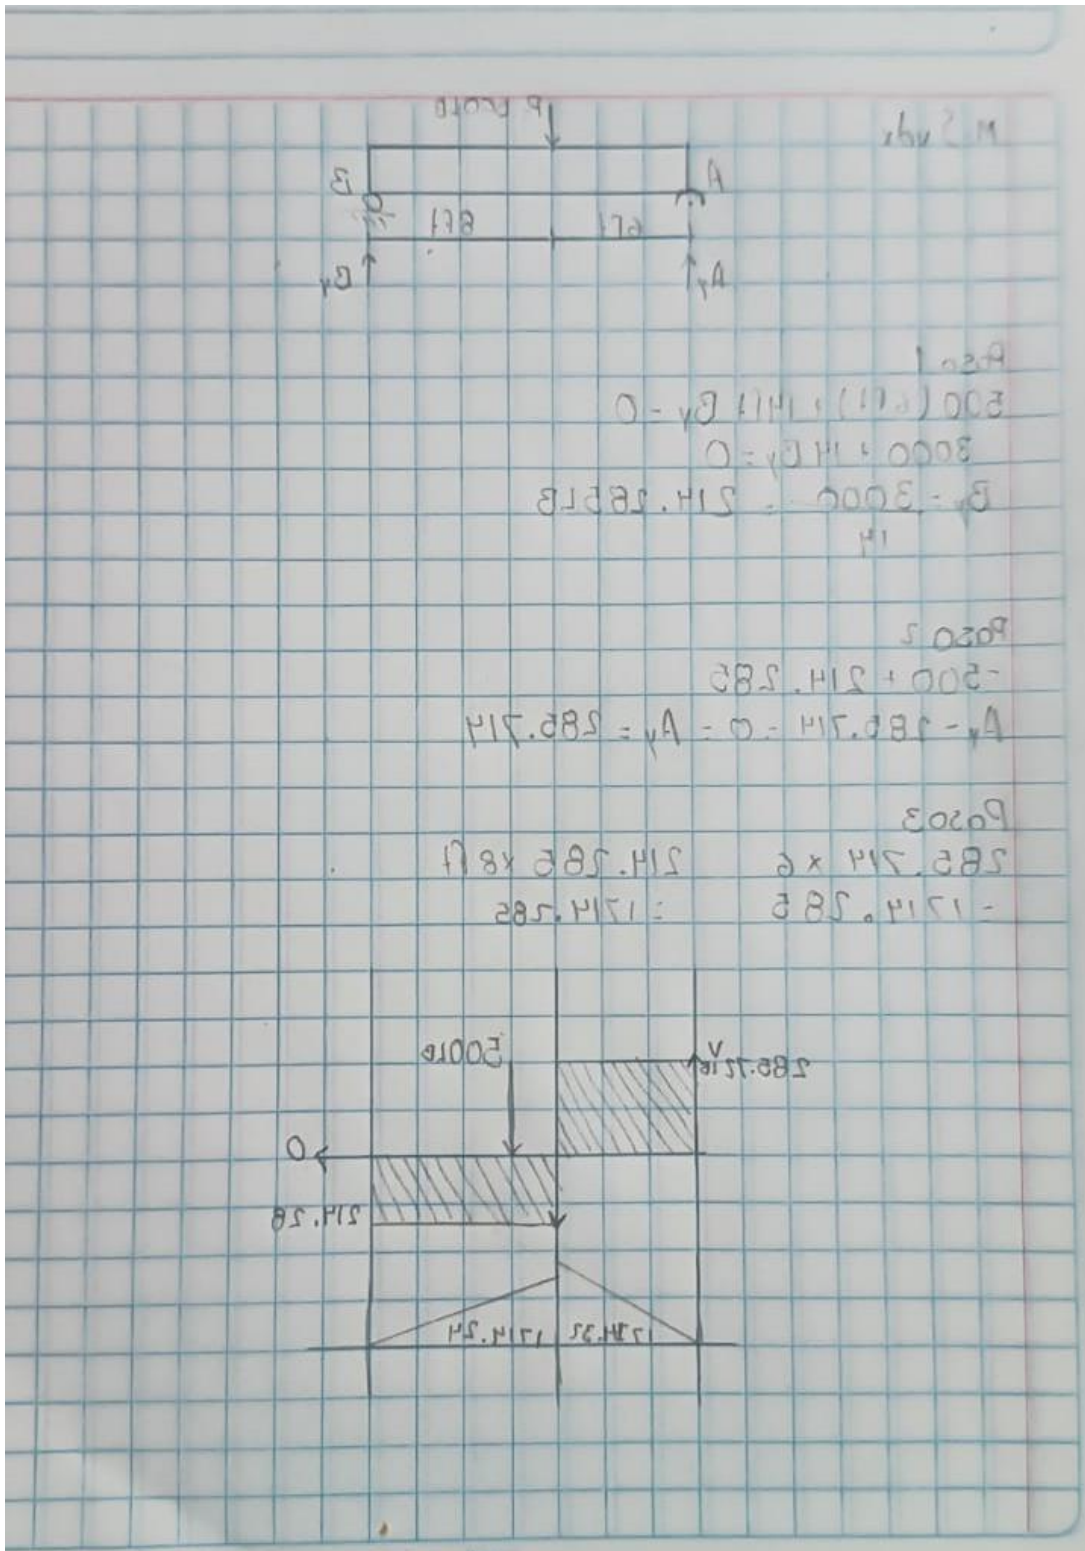 P 500lb
A B
6ft 8ft
Ay By
Paso 1
500 (6ft) + 14ft By = 0
3000 + 14By = 0
By = 3000 = 214.285LB
14
Paso 2
-500 + 214.285
Ay - 285.714 = 0 = Ay = 285.714
Paso3
285.714 x 6 214.285 x8ft
= 1714.285 = 1714.285
V 500lb
0
214.28
1714.24